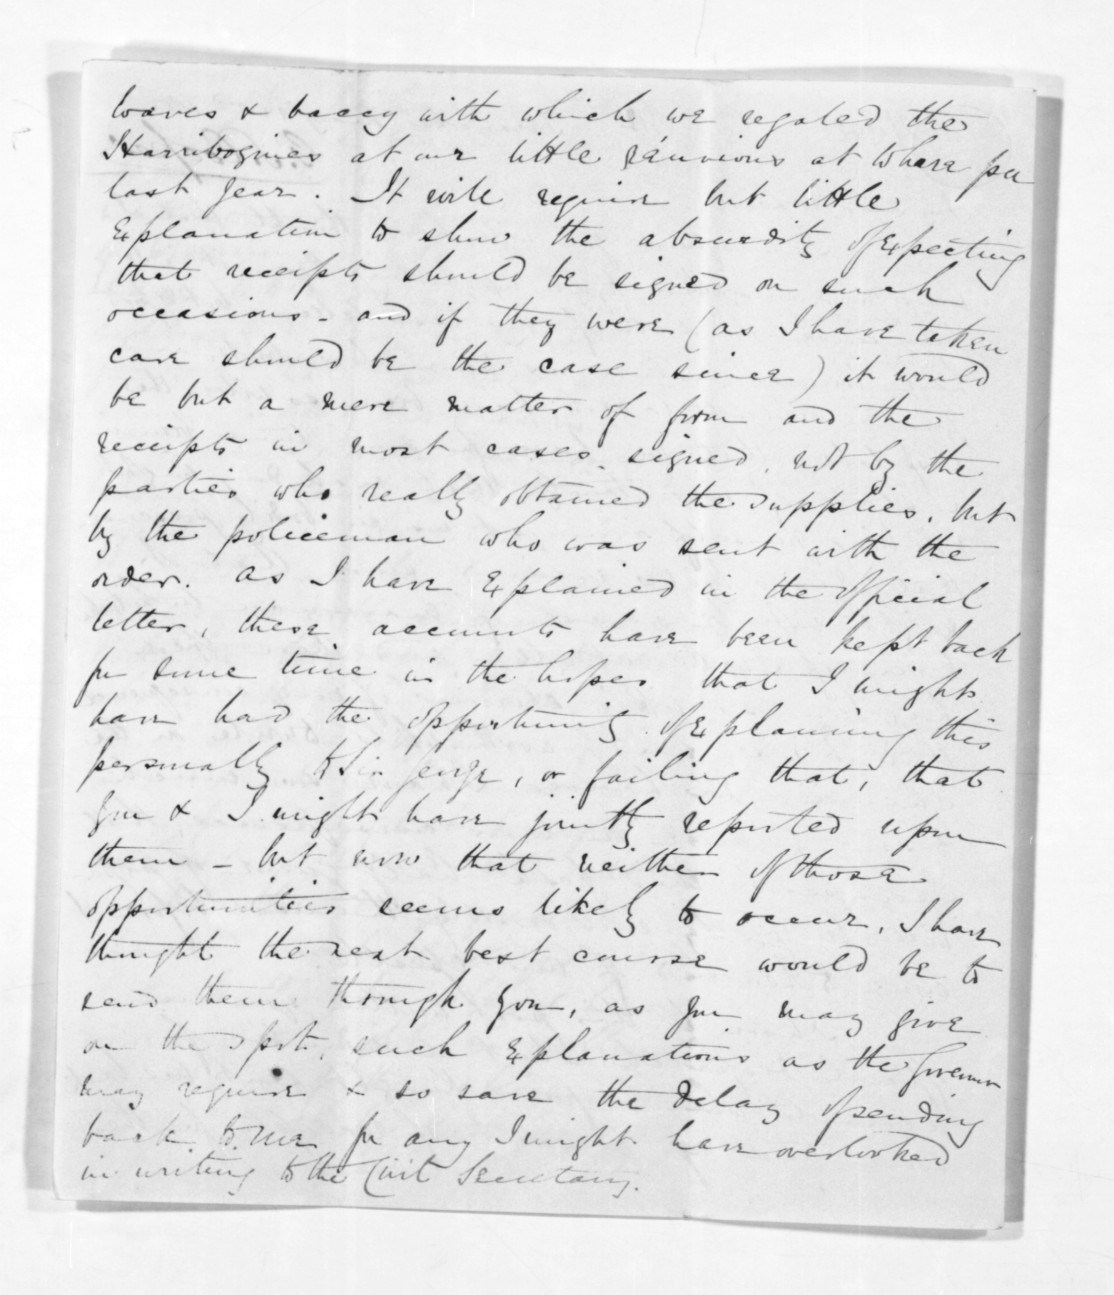 loaves & baccy with which we regaled the
Harribogines at our little réunions at Whare pu
last year. It will require but little
Explanation to shew the absurdity of Expecting
that receipts should be signed on such
occasions - and if they were (as I have taken
care should be the case since) it would
be but a mere matter of form and the
receipts in most cases signed, not by the
parties who really obtained the supplies, but
by the policeman who was sent with the
order. As I have Explained in the official
letter, these accounts have been kept back
for some time in the hopes that I might
have had the opportunity of Explaining this
personally to Sir George, or failing that, that
you & I might have jointly reported upon
them - but now that neither of those
opportunities seems likely to occur, I have
thought the next best course would be to
send them through you, as you may give
on the spot, such Explanations as the Governor
may require & so save the delay of sending
back to me for any I might have overlooked
in writing to the Civil Secretary.